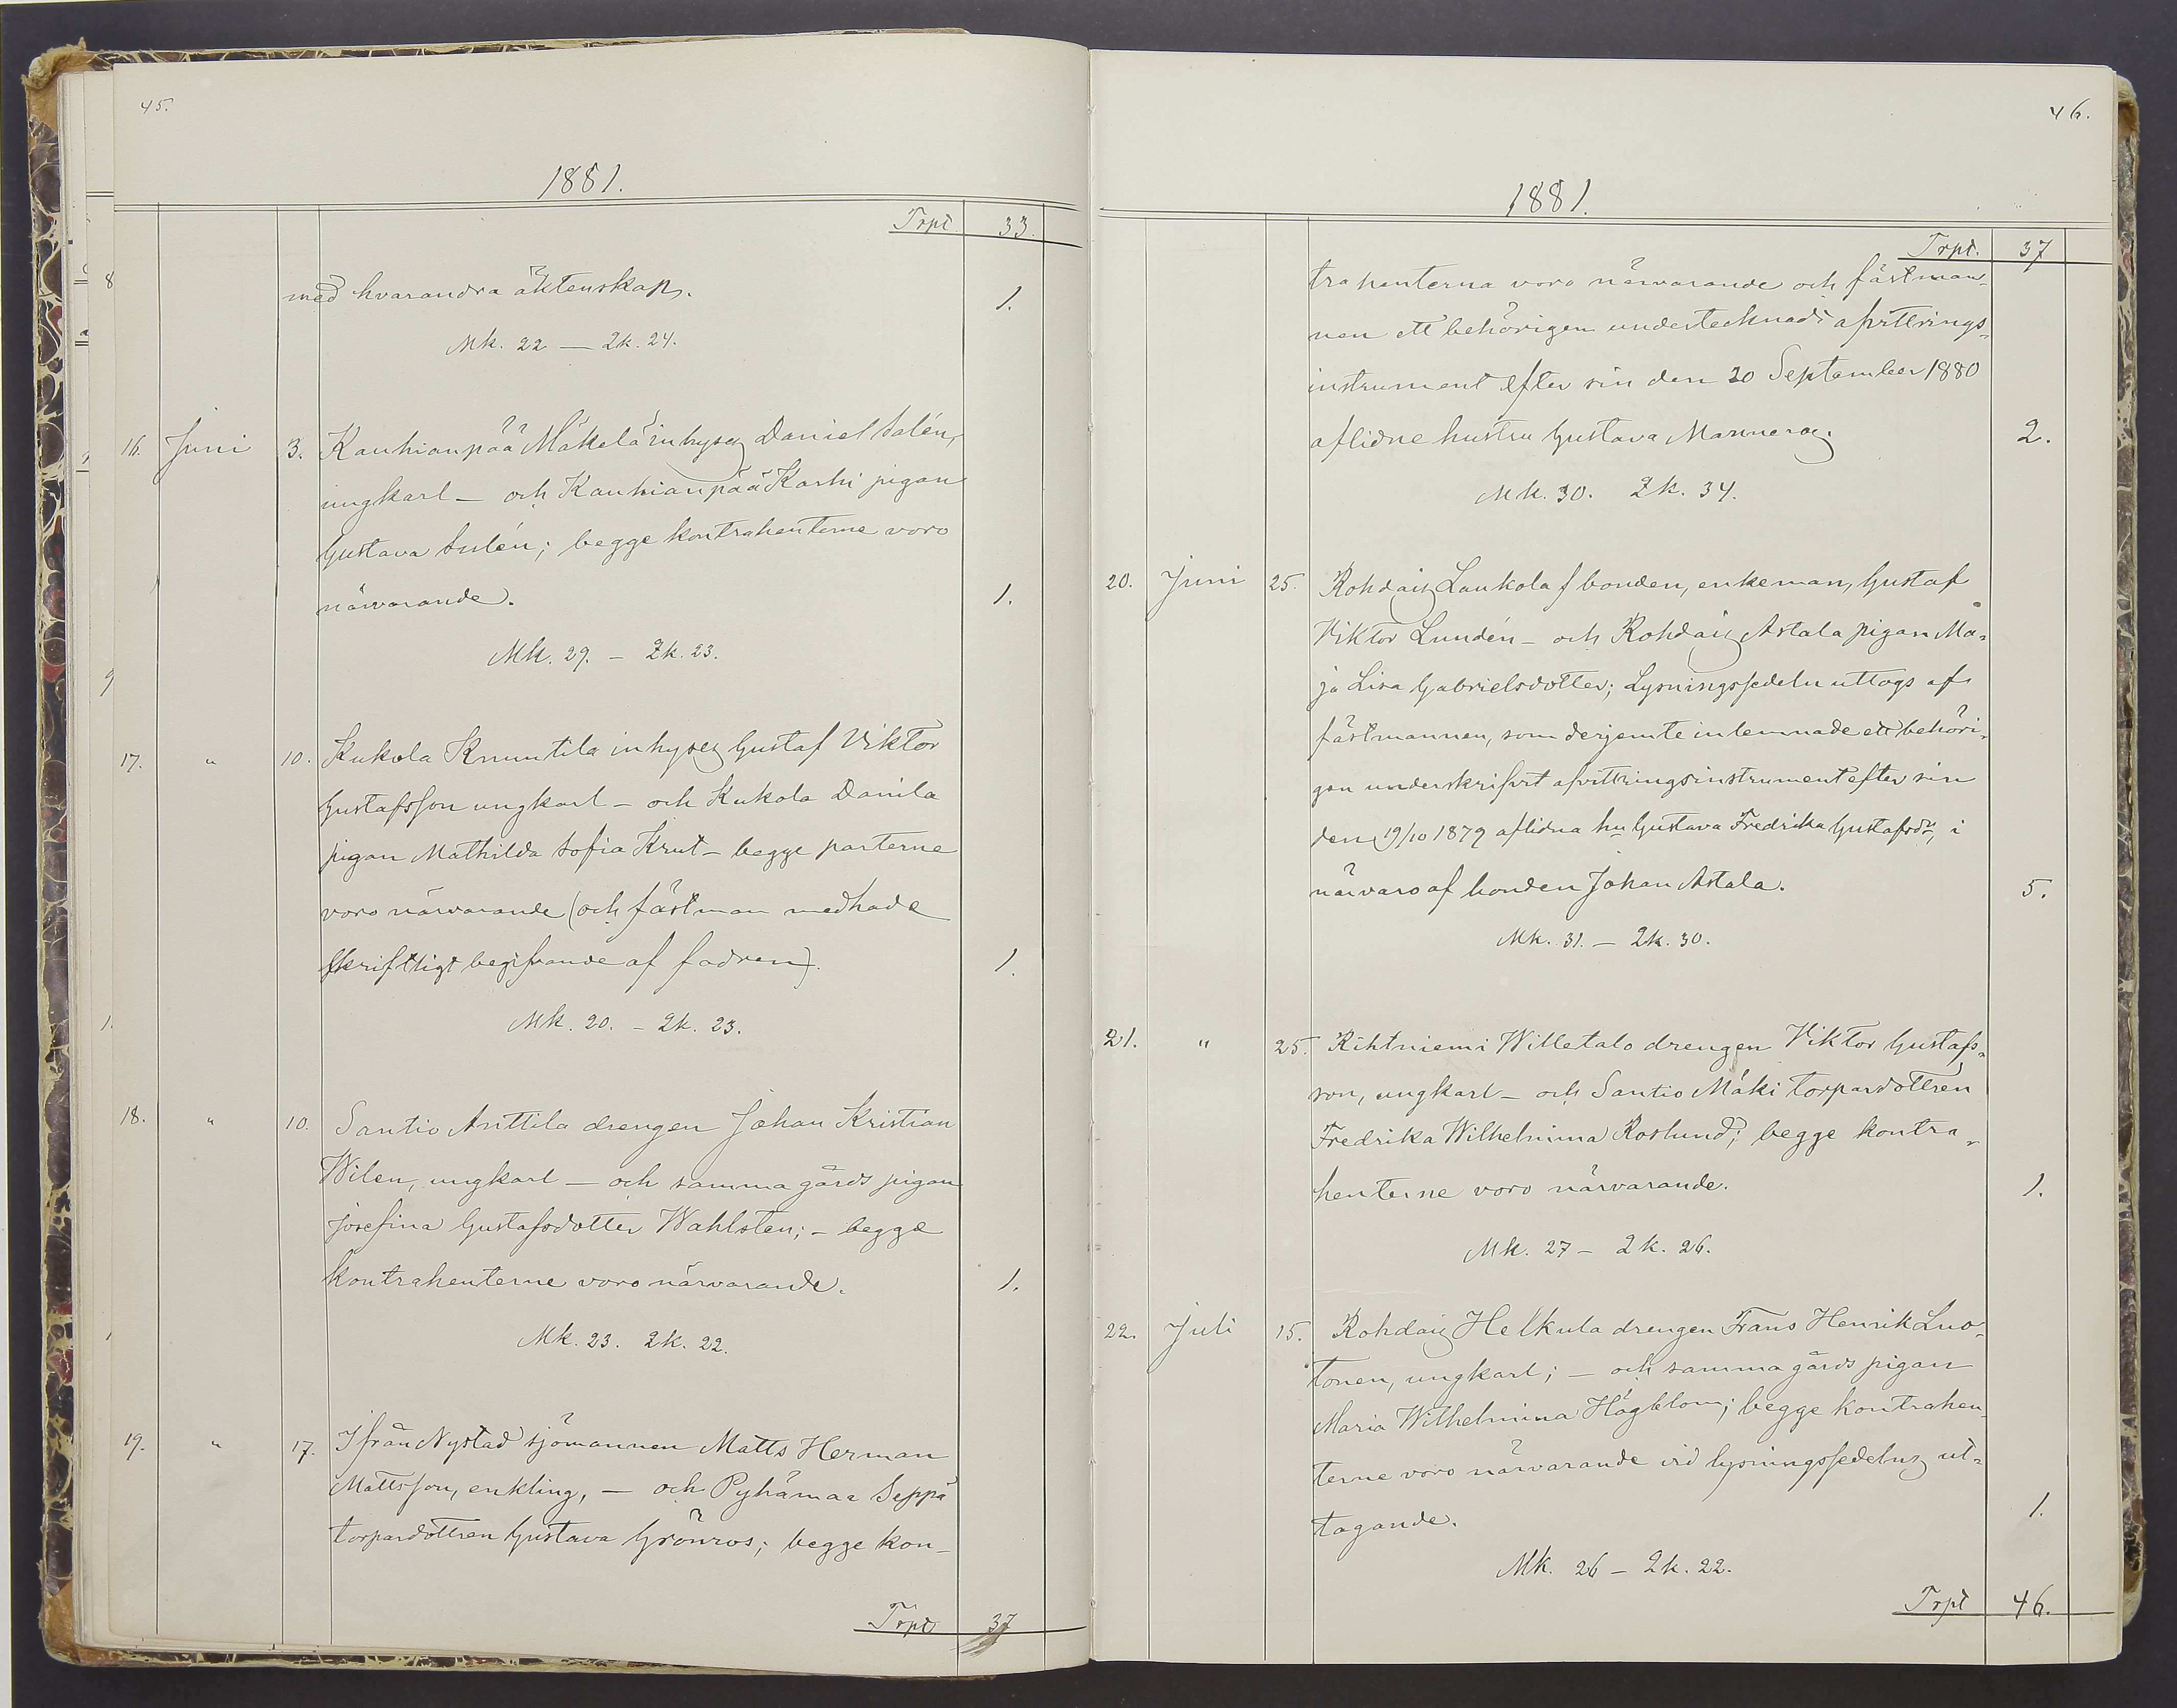 45.
1881.
Trpt 33.
med hvarandra äktenskap. 1.
Mk. 22 — Qk. 24.
16. Juni 3. Kauhianpää Mäkelä inhyses Daniel Salén,
ungkarl – och Kauhianpää Karhi pigan
Gustava Sulén; begge kontrahenterne voro
närvarande. 1.
Mk. 29. – Qk. 23.
17. " 10. Kukola Knuutila inhyses Gustaf Viktor
Gustafsson ungkarl – och Kukola Danila
pigan Mathilda Sofia Krut – begge parterne
voro närvarande (och fästman medhade
skriftligt begifvande af fadren). 1.
Mk. 20. – Qk. 23.
18. " 10. Santio Anttila drengen Johan Kristian
Wilen, ungkarl — och samma gårds pigan
Josefina Gustafsdotter Wahlsten; – begge
kontrahenterne voro närvarande. 1.
Mk. 23. Qk. 22.
19. " 17. Ifrån Nystad sjömannen Matts Herman
Mattsson, enkling, — och Pyhämaa Seppä
torpardottren Gustava Grönroos; begge kon-
Trpt 37
46.
1881.
Trpt. 37
trahenterna voro närvarande och fästman-
nen ett behörigen undertecknadt afvittrings-
instrument efter sin den 20 September 1880
aflidne hustru Gustava 2.
Mk. 30. Qk. 34.
20. Juni 25. Rohdais Laukola f bonden, enkeman, Gustaf
Viktor Lundén – och Rohdais Astala pigan Ma-
ja Lisa Gabrielsdotter; Lysningssedeln uttogs af
fästmannen, som derjemte inlemnade ett behöri-
gen underskrifvet afvittringsinstrument efter sin
den 19/10 1879 aflidna hu Gustava Fredrika Gustafsdr, i
närvaro af bonden Johan Astala. 5.
Mk. 31. – Qk. 30.
21. " 25. Rihtniemi Willetalo drengen Viktor Gustafs-
son, ungkarl – och Santio Mäki torpardottren
Fredrika Wilhelmina Roslund; begge kontra-
henterne voro närvarande. 1.
Mk. 27 – Qk. 26.
22. Juli 15. Rohdais Helkula drengen Frans Henrik Luo-
tonen, ungkarl; – och samma gårds pigan
Maria Wilhelmina Högblom; begge kontrahen-
terne voro närvarande vid lysningssedelns ut-
tagande. 1.
Mk. 26 – Qk. 22.
Trpt 46.